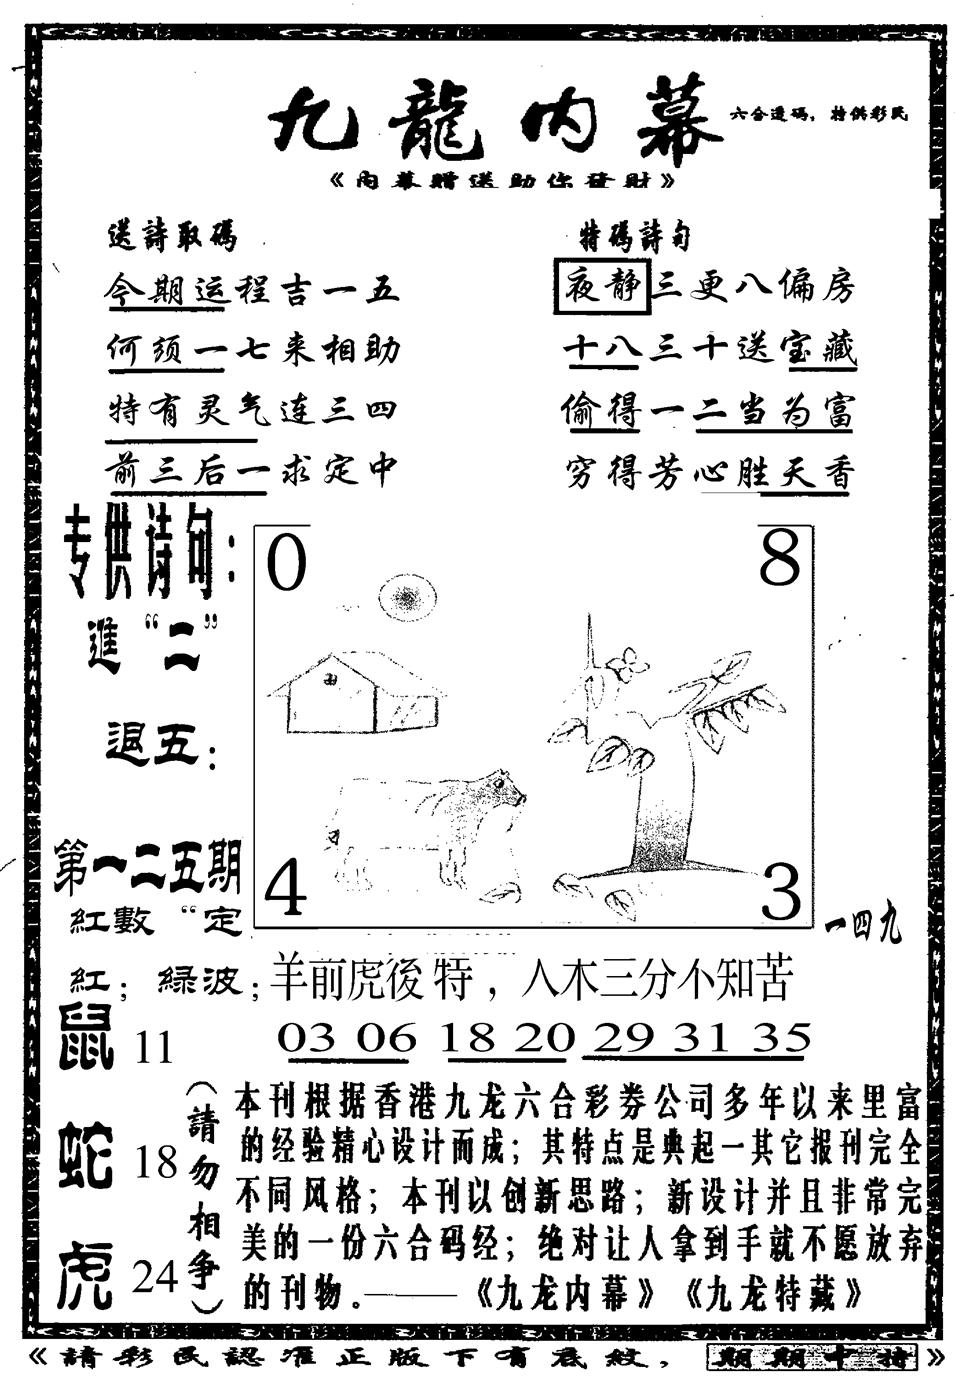 九龍内幕
六合透码，特供彩民
《内幕贈送助你發財》
送詩取碼
今期运程吉一五
何须一七来相助
特有灵气连三四
前三后一求定中
特碼詩句
夜静三更八偏房
十八三十送宝藏
偷得一二当为富
穷得芳心胜天香
专供诗句：
進“二”
退五：
第一二五期
紅數“定
紅；綠波；
0
8
4
3
一四九
羊前虎後特，人木三分小知苦
03 06 18 20 29 31 35
鼠 11
蛇 18
虎 24
（請勿相争）
本刊根据香港九龙六合彩券公司多年以来里富
的经验精心设计而成；其特点是典起一其它报刊完全
不同风格；本刊以创新思路；新设计并且非常完
美的一份六合码经；绝对让人拿到手就不愿放弃
的刊物。———《九龙内幕》《九龙特藏》
《請彩民認准正版下有底紋，期期中特》